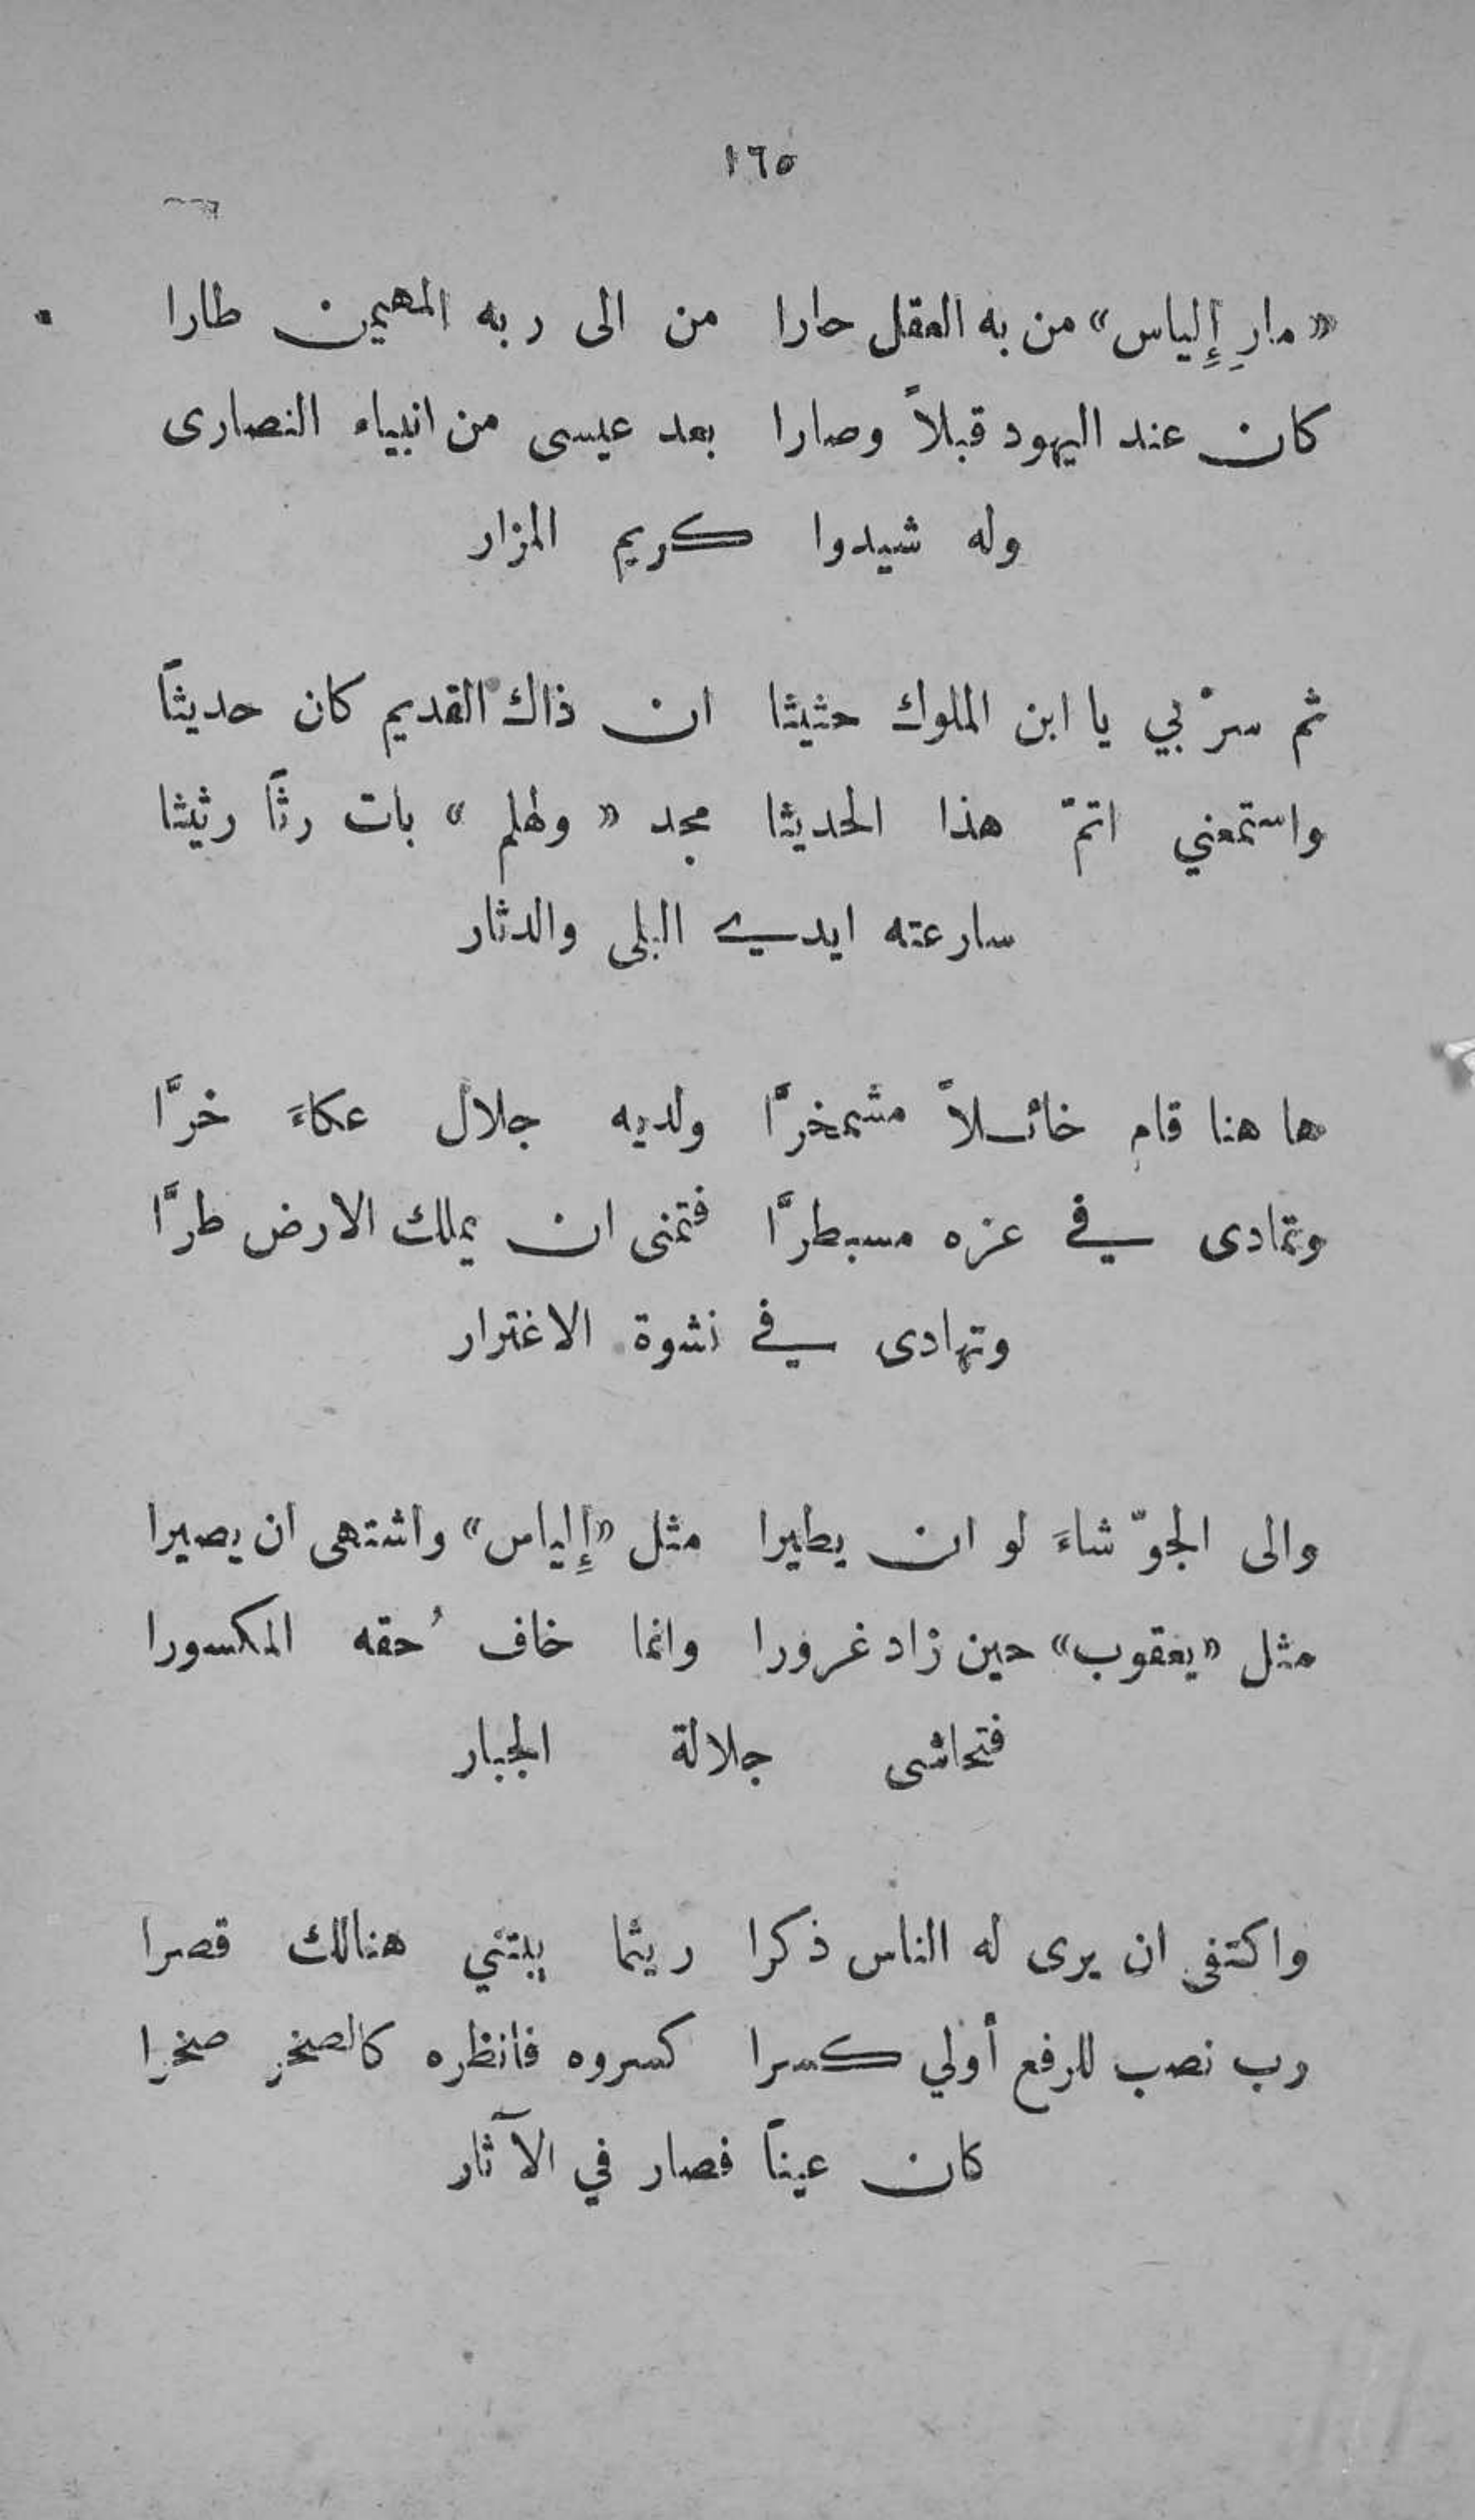 ١٦٥
«مارِ إِلياس» من به العقل حارا من الى ربه المهيمن طارا
كان عند اليهود قبلاً وصارا بعد عيسى من انبياء النصارى
وله شيدوا كريم المزار
ثم سرْ بي يا ابن الملوك حثيثا ان ذاك القديم كان حديثاً
واستمعني اتمّ هذا الحديثا مجد «ولهلم» بات رثاً رثيثا
سارعته ايدي البلى والدثار
ها هنا قام خائلاً مشمخرًّا ولديه جلال عكاءَ خرًّا
وتمادى في عزه مسبطرًّا فتمنى ان يملك الارض طرًّا
وتهادى في نشوة الاغترار
والى الجوّ شاءَ لو ان يطيرا مثل «إِلياس» واشتهى ان يصيرا
مثل «يعقوب» حين زاد غرورا وانما خاف حُقه المكسورا
فتحاشى جلالة الجبار
واكتفى ان يرى له الناس ذكرا ريثما يبتني هنالك قصرا
رب نصب للرفع أولي كسرا كسروه فانظره كالصخر صخرا
كان عيناً فصار في الآثار